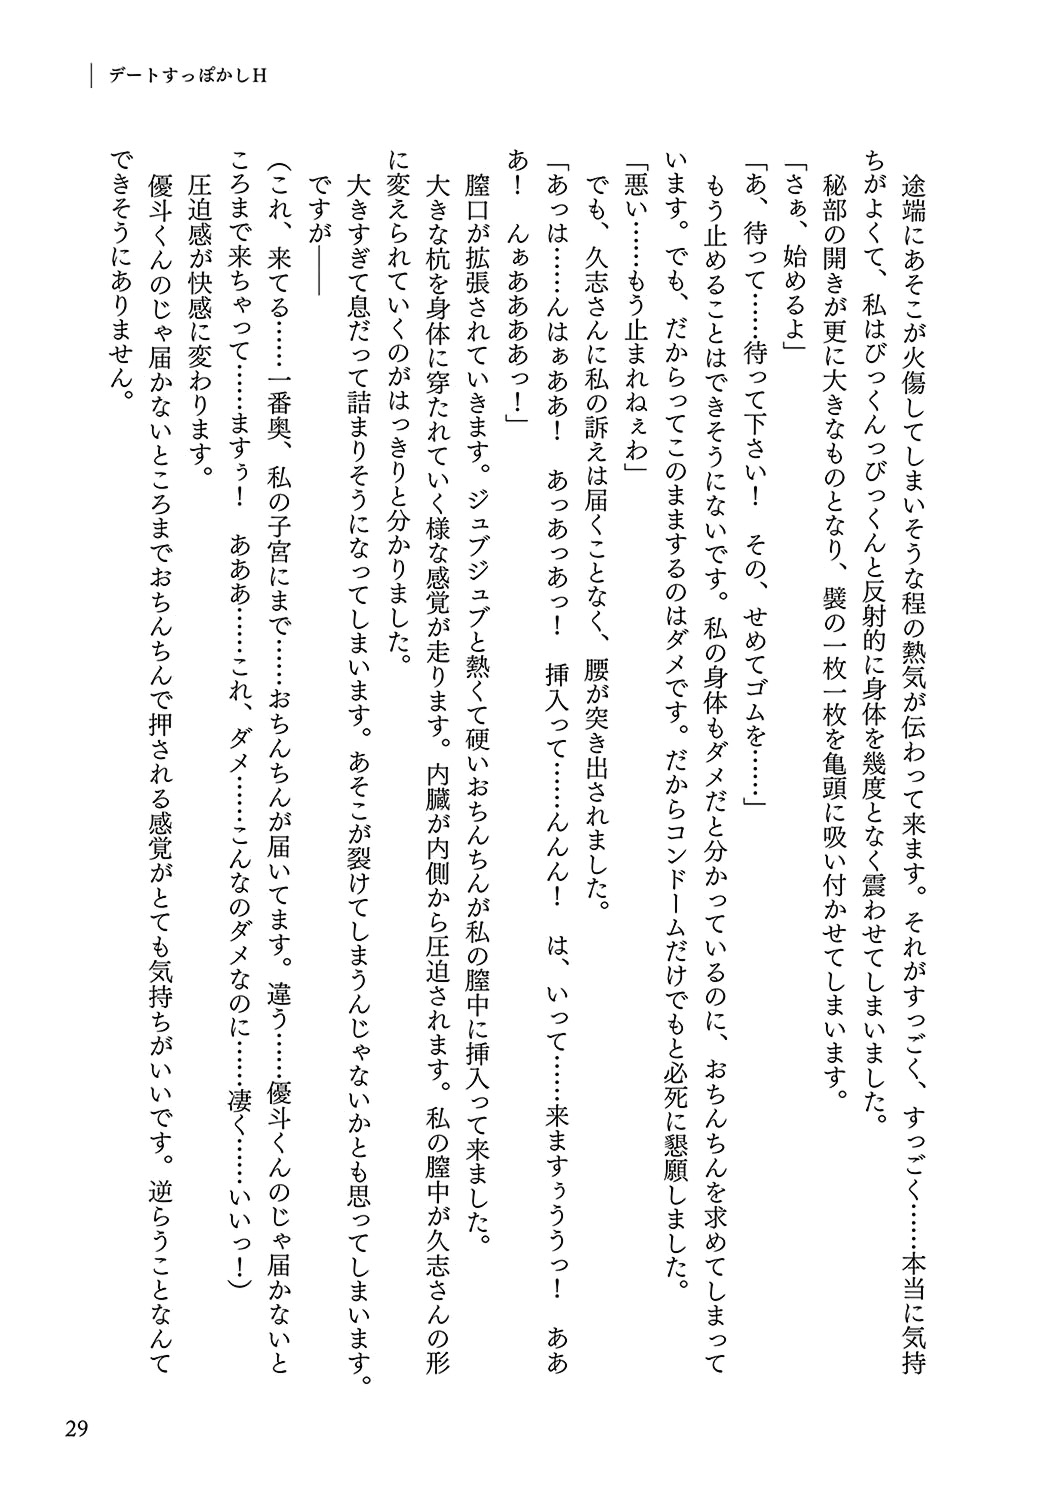 デートすっぽかしH
途端にあそこが火傷してしまいそうな程の熱気が伝わって来ます。それがすっごく、すっごく……本当に気持
ちがよくて、私はびっくんっびっくんと反射的に身体を幾度となく震わせてしまいました。
秘部の開きが更に大きなものとなり、襞の一枚一枚を亀頭に吸い付かせてしまいます。
「さぁ、始めるよ」
「あ、待って……待って下さい！　その、せめてゴムを……」
もう止めることはできそうにないです。私の身体もダメだと分かっているのに、おちんちんを求めてしまって
います。でも、だからってこのままするのはダメです。だからコンドームだけでもと必死に懇願しました。
「悪い……もう止まれねぇわ」
でも、久志さんに私の訴えは届くことなく、腰が突き出されました。
「あっは……んはぁああ！　あっあっあっ！　挿入って……んんん！　は、いって……来ますぅううっ！　ああ
あ！　んぁああああっ！」
膣口が拡張されていきます。ジュブジュブと熱くて硬いおちんちんが私の膣中に挿入って来ました。
大きな杭を身体に穿たれていく様な感覚が走ります。内臓が内側から圧迫されます。私の膣中が久志さんの形
に変えられていくのがはっきりと分かりました。
大きすぎて息だって詰まりそうになってしまいます。あそこが裂けてしまうんじゃないかとも思ってしまいます。
ですが――
（これ、来てる……一番奥、私の子宮にまで……おちんちんが届いてます。違う……優斗くんのじゃ届かないと
ころまで来ちゃって……ますぅ！　あああ……これ、ダメ……こんなのダメなのに……凄く……いいっ！）
圧迫感が快感に変わります。
優斗くんのじゃ届かないところまでおちんちんで押される感覚がとても気持ちがいいです。逆らうことなんて
できそうにありません。
29